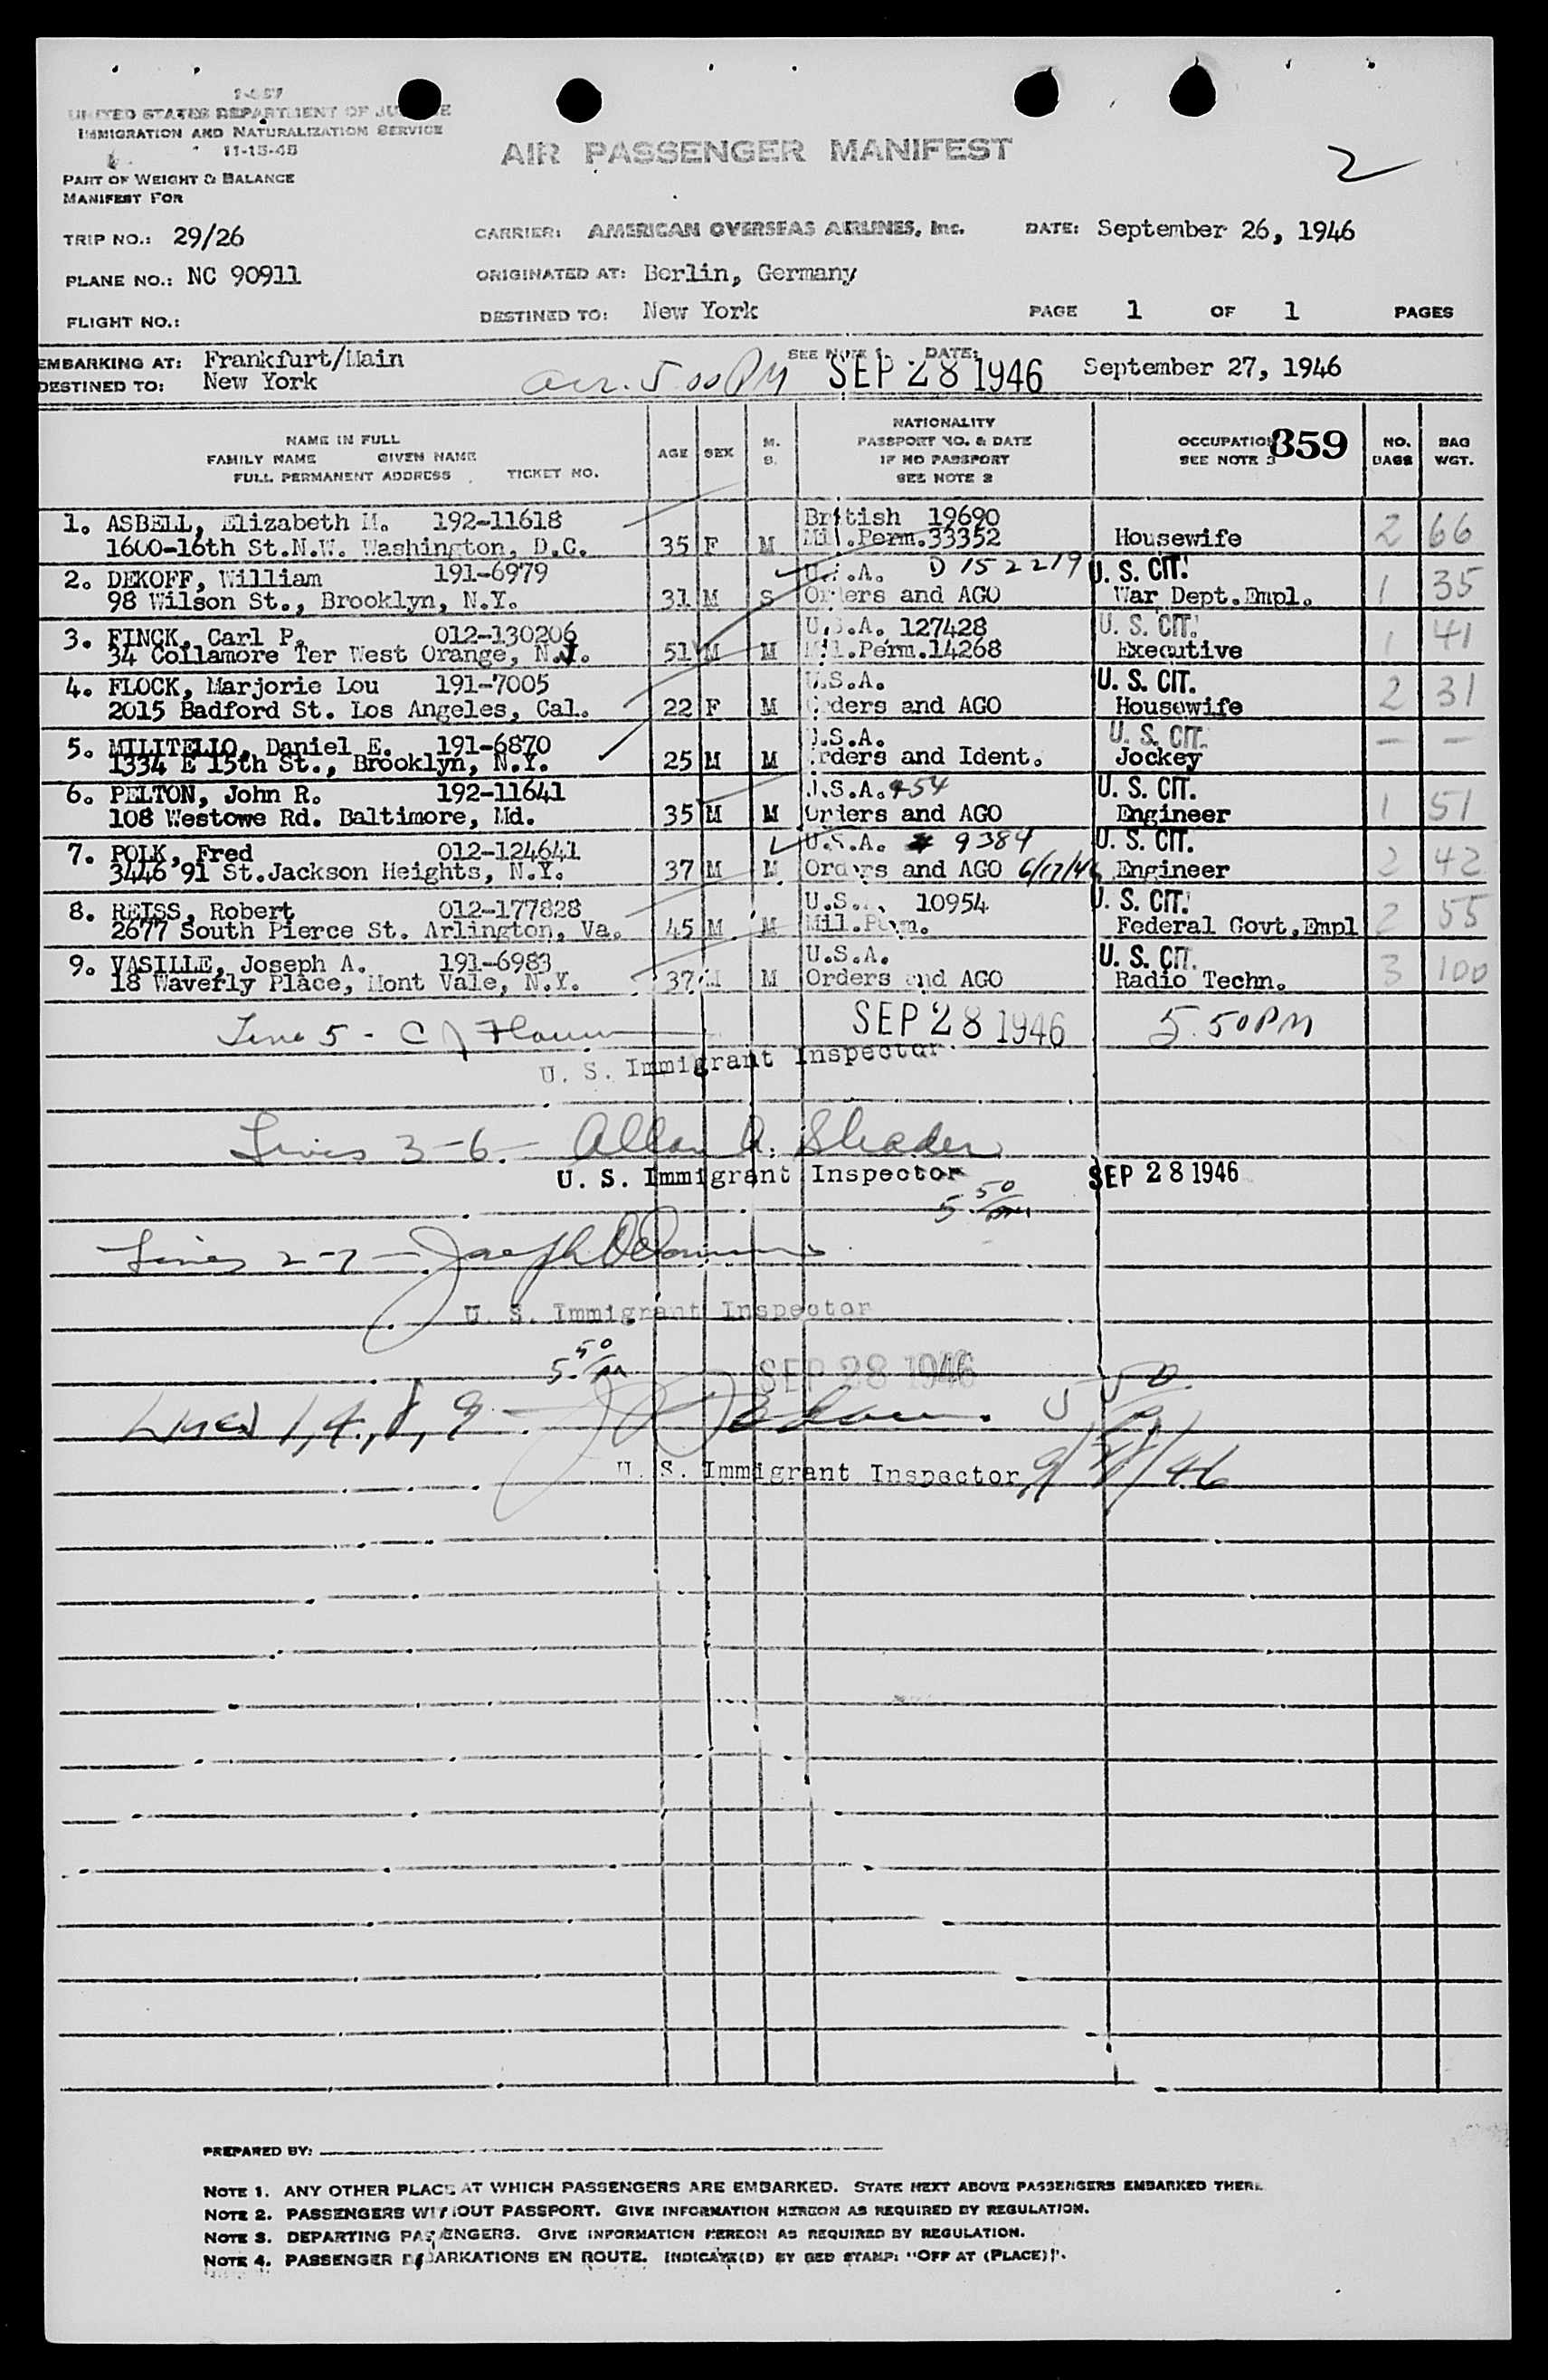 UNITED STATES DEPARTMENT OF JUSTICE
IMMIGRATION AND NATURALIZATION SERVICE
AIR PASSENGER MANIFEST
2
PART OF WEIGHT & BALANCE
MANIFEST FOR
TRIP NO.: 29/26 CARRIER: AMERICAN OVERSEAS AIRLINES, Inc. DATE: September 26, 1946
PLANE NO.: NC 90911 ORIGINATED AT: Berlin, Germany
FLIGHT NO.: DESTINED TO: New York PAGE 1 OF 1 PAGES
EMBARKING AT: Frankfurt/Main SEE NOTE 1. DATE: September 27, 1946
DESTINED TO: New York arr. 5 00 PM SEP 28 1946
NAME IN FULL
FAMILY NAME GIVEN NAME
FULL PERMANENT ADDRESS TICKET NO.
AGE SEX M. S.
NATIONALITY
PASSPORT NO. & DATE
IF NO PASSPORT
SEE NOTE 2
OCCUPATION 359
SEE NOTE 3
NO. BAGS
BAG WGT.
1. ASBELL, Elizabeth M. 192-11618 British 19690
1600-16th St.N.W. Washington, D.C. 35 F M Mil.Perm.33352 Housewife 2 66
2. DEKOFF, William 191-6979 U.S.A. D 152219 U. S. CIT.
98 Wilson St., Brooklyn, N.Y. 31 M S Orders and AGO War Dept.Empl. 1 35
3. FINCK, Carl P. 012-130206 U.S.A. 127428 U. S. CIT.
34 Collamore Ter West Orange, N.J. 51 M M Mil.Perm.14268 Executive 1 41
4. FLOCK, Marjorie Lou 191-7005 U.S.A. U. S. CIT.
2015 Badford St. Los Angeles, Cal. 22 F M Orders and AGO Housewife 2 31
5. MILITELLO, Daniel E. 191-6870 U.S.A. U. S. CIT.
1334 E 15th St., Brooklyn, N.Y. 25 M M Orders and Ident. Jockey — —
6. PELTON, John R. 192-11641 U.S.A. 954 U. S. CIT.
108 Westowe Rd. Baltimore, Md. 35 M M Orders and AGO Engineer 1 51
7. POLK, Fred 012-124641 U.S.A. # 9384 U. S. CIT.
3446 91 St.Jackson Heights, N.Y. 37 M M Orders and AGO 6/17/46 Engineer 2 42
8. REISS, Robert 012-177828 U.S.A. 10954 U. S. CIT.
2677 South Pierce St. Arlington, Va. 45 M M Mil.Perm. Federal Govt.Empl 2 55
9. VASILLE, Joseph A. 191-6983 U.S.A. U. S. CIT.
18 Waverly Place, Mont Vale, N.Y. 37 M M Orders and AGO Radio Techn. 3 100
Line 5 - C J SEP 28 1946 5.50 PM
U. S. Immigrant Inspector
Lines 3-6. - Allan A. Shader
U. S. Immigrant Inspector SEP 28 1946
5 50
Lines 2-7 - Joseph
U. S. Immigrant Inspector
5 50 SEP 28 1946
Lines 1, 4, 8, 9 - 5 50
U. S. Immigrant Inspector 9/28/46
PREPARED BY:
NOTE 1. ANY OTHER PLACE AT WHICH PASSENGERS ARE EMBARKED. STATE NEXT ABOVE PASSENGERS EMBARKED THERE
NOTE 2. PASSENGERS WITHOUT PASSPORT. GIVE INFORMATION HEREON AS REQUIRED BY REGULATION.
NOTE 3. DEPARTING PASSENGERS. GIVE INFORMATION HEREON AS REQUIRED BY REGULATION.
NOTE 4. PASSENGER DEBARKATIONS EN ROUTE. INDICATE(D) BY RED STAMP: "OFF AT (PLACE)".